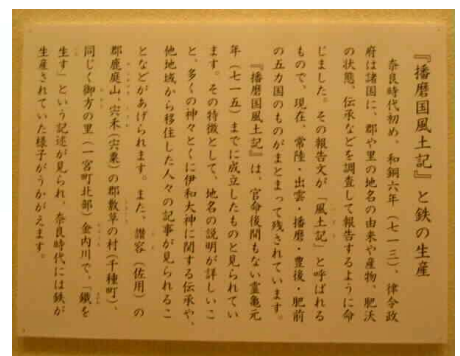 『播磨国風土記』と鉄の生産
奈良時代初め、和銅六年（七一三）、律令政
府は諸国に、郡や里の地名の由来や産物、肥沃
の状態、伝承などを調査して報告するように命
じました。その報告文が「風土記」と呼ばれる
もので、現在、常陸・出雲・播磨・豊後・肥前
の五カ国のものがまとまって残されています。
『播磨国風土記』は、官命後間もない霊亀元
年（七一五）までに成立したものと見られてい
ます。その特徴として、地名の説明が詳しいこ
と、多くの神々とくに伊和大神に関する伝承や、
他地域から移住した人々の記事が見られるこ
となどがあげられます。また、讃容（佐用）の
郡鹿庭山、宍禾（宍粟）の郡敷草の村（千種町）、
同じく御方の里（一宮町北部）金内川で、「鐵を
生す」という記述が見られ、奈良時代には鉄が
生産されていた様子がうかがえます。